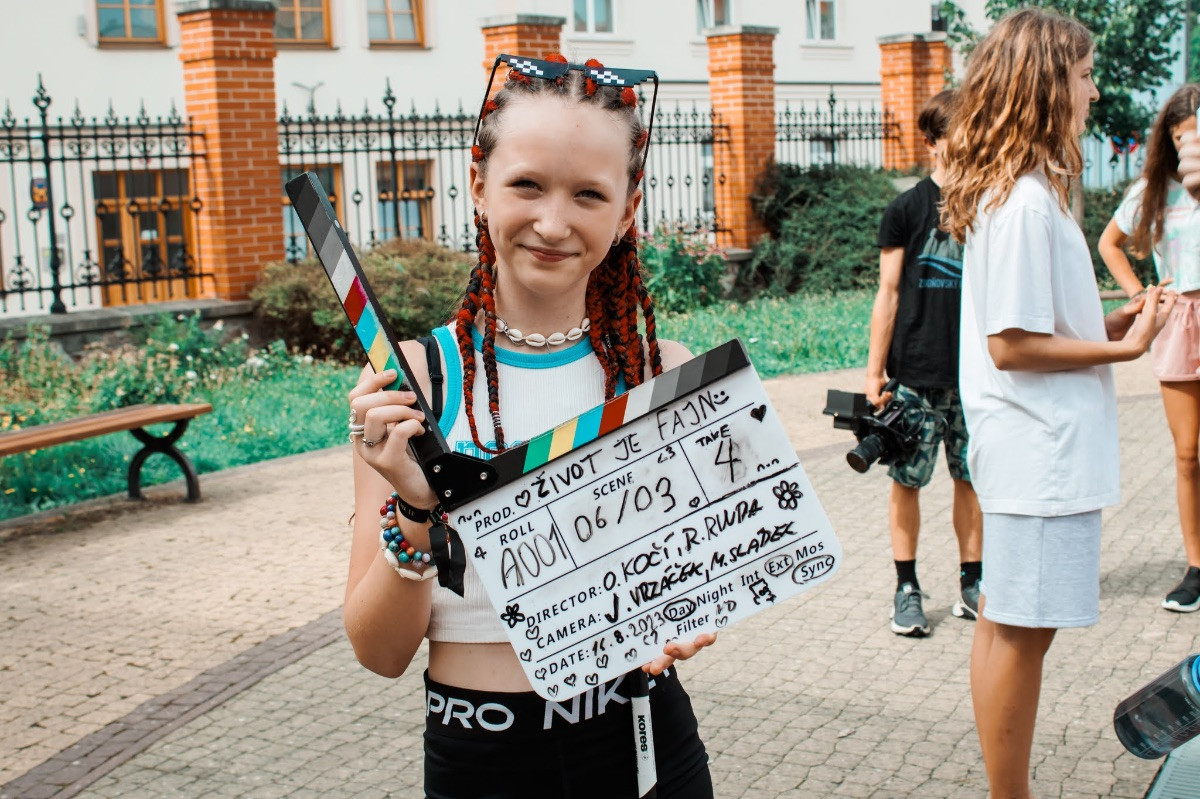 PROD. ŽIVOT JE FAJN
ROLL
A001
SCENE
06/03
<3
TAKE
4
DIRECTOR: O. KOČÍ, R. RUDA
CAMERA: J. VRZÁČEK, M. SLÁDEK
DATE: 16.8.2023 Day Night Int Ext Mos
Filter ND Sync
PRO NIKE
kores